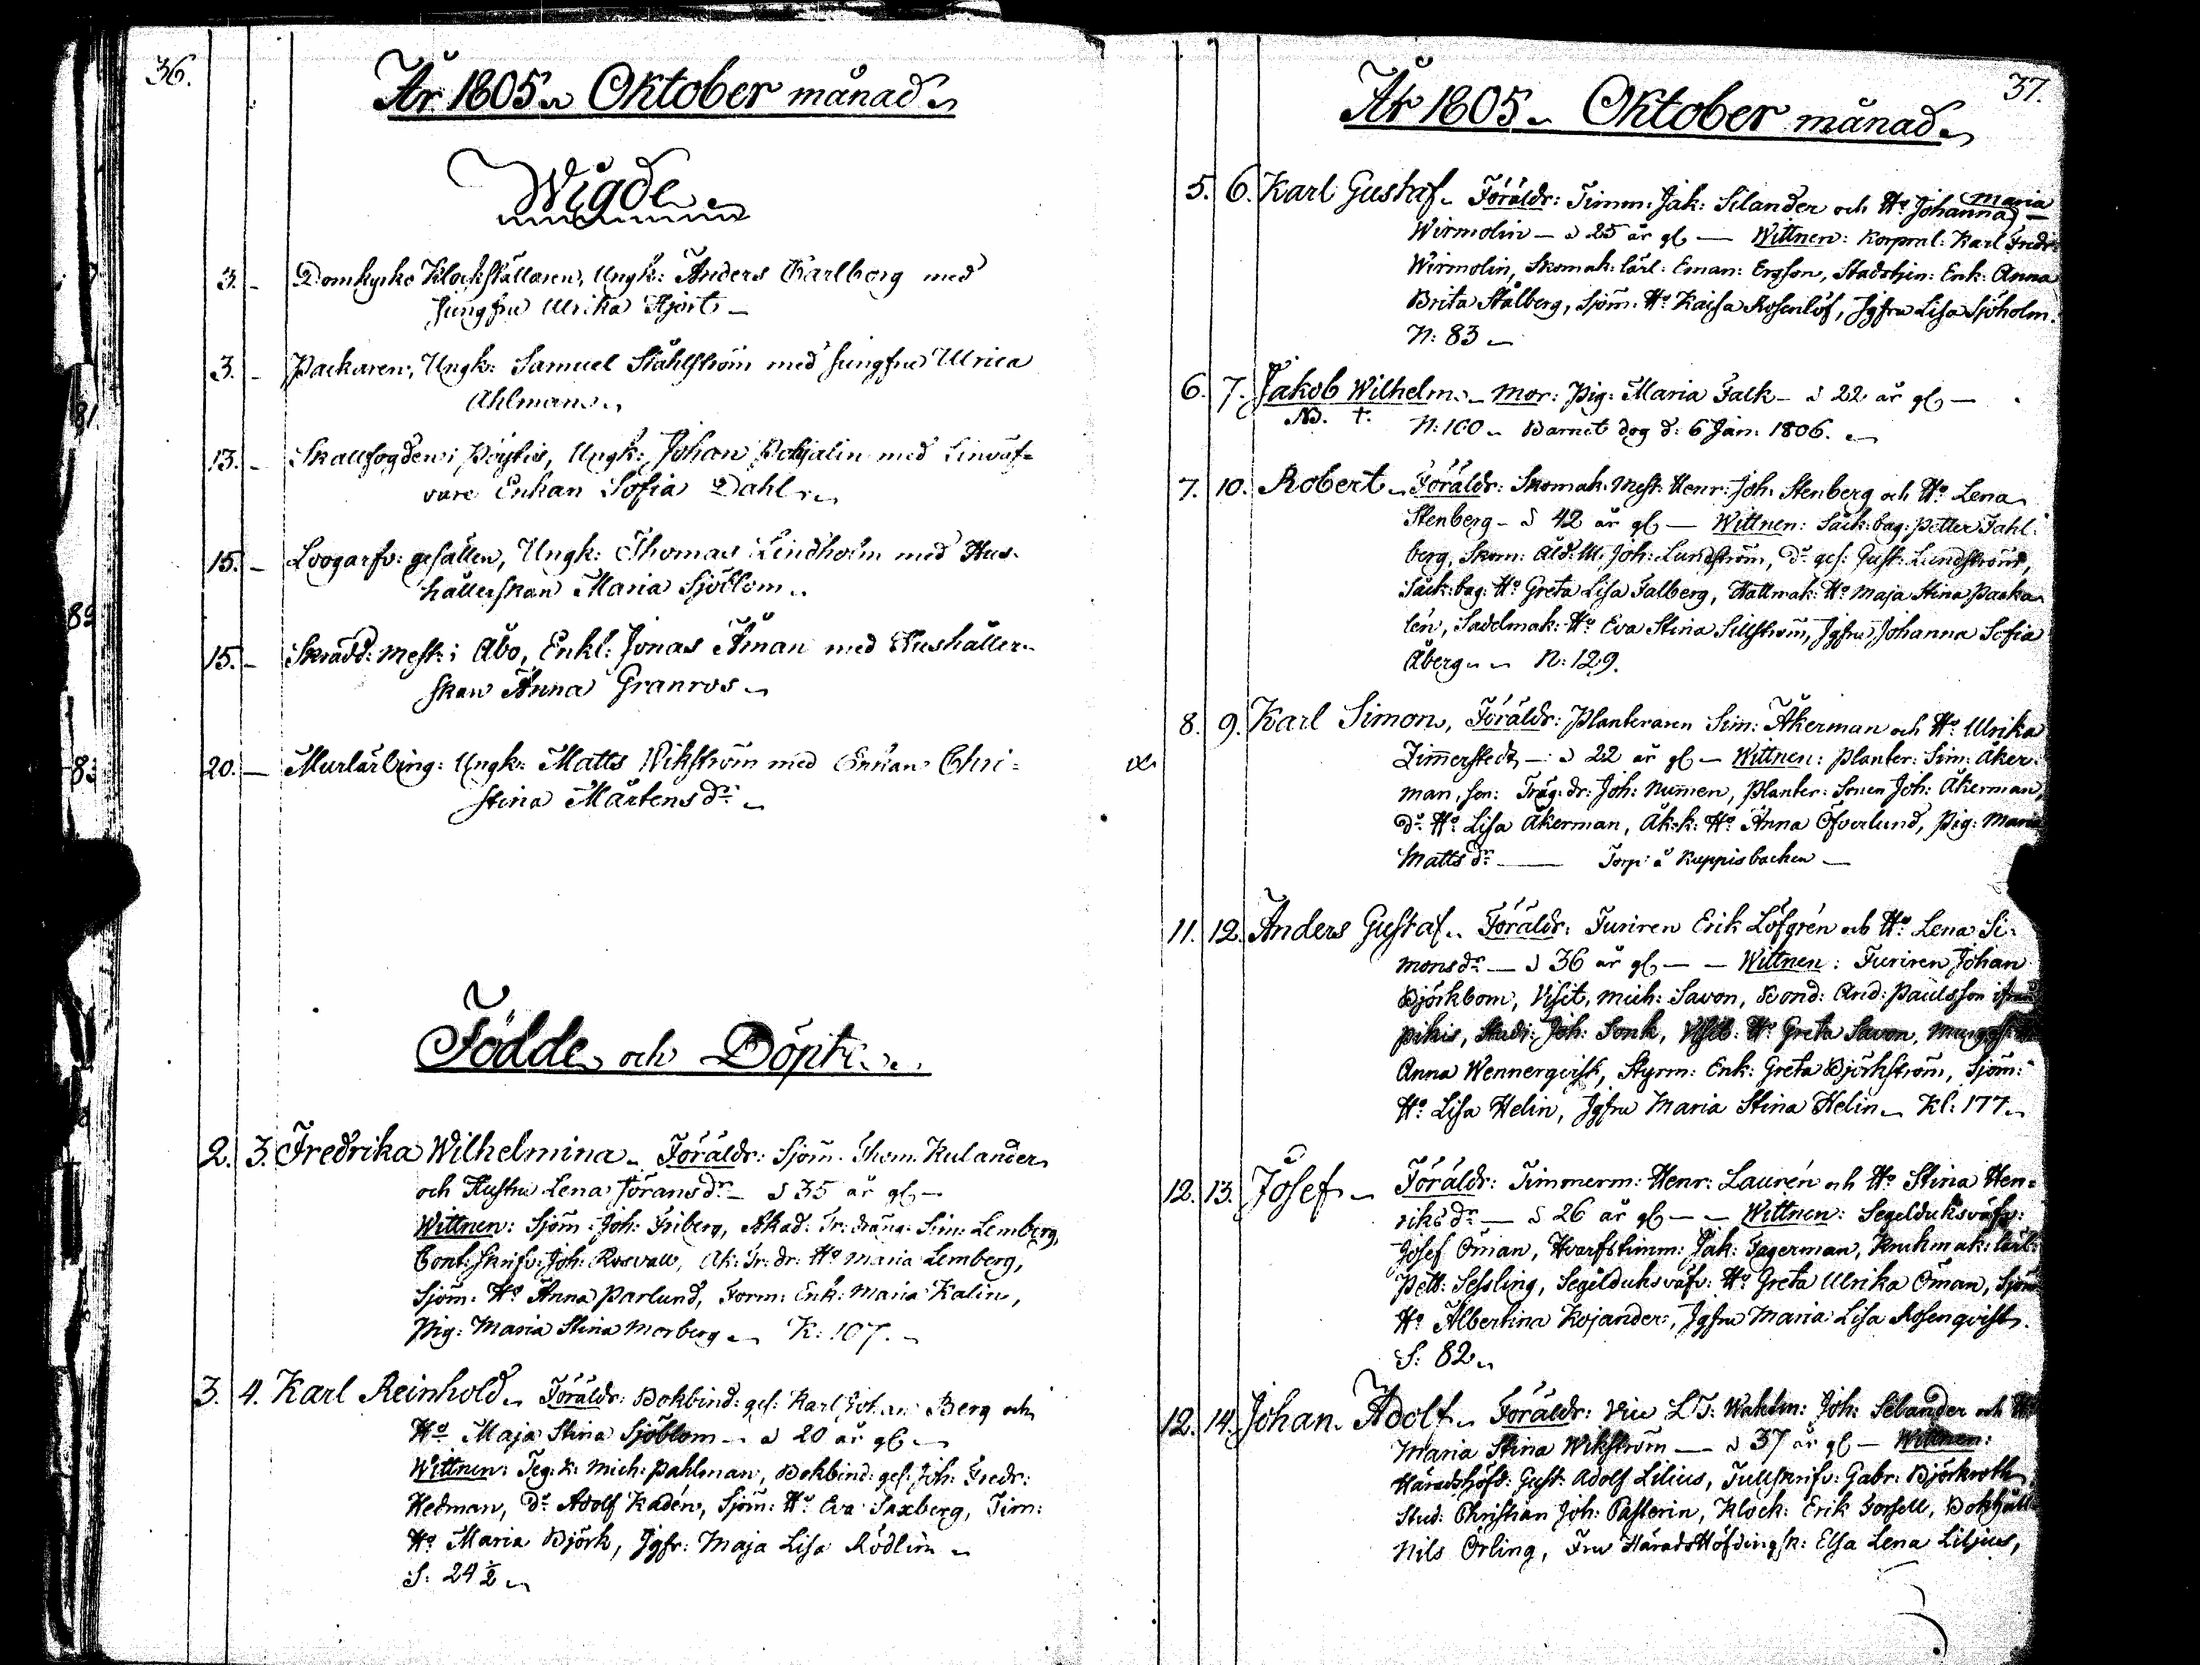 36.
År 1805. Oktober månad.
Wigde.
3. - Domkyrko Klockställaren, Ungk: Anders Carlborg med
Jungfru Ulrika Hjort -
3. - Packaren, Ungk: Samuel Ståhlström med Jungfru Ulrica
Ahlman.
13. - Skallfogden i Pöytis, Ungk: Johan Pohjalin med Linväf=
vare Enkan Sofia Dahl.
15. - Logarfv: gesällen, Ungk: Thomas Lindholm med Hus-
hållerskan Maria Sjöblom.
15. - Skrädd: Mest: i Åbo, Enkl: Jonas Åman med Hushåller-
skan Anna Granros.
20. - Murlärling: Ungk: Matts Wikström med Enkan Chri=
stina Mårtensdr.
Födde och Döpte.
2. 3. Fredrika Wilhelmina. Föräldr: Sjöm. Thom. Kulander
och Hustru Lena Jöransdr - d 35 år gl -
Wittnen: Sjöm: Joh: Friberg, Akad: Tr: dräng: Sim: Lemberg,
Cont: skrifv: Joh: Rosvall, Ak: Tr: dr: Ho Maria Lemberg,
Sjöm: Ho Anna Parlund, Form: Enk: Maria Kalin,
Pig: Maria Stina Morberg. K: 107.
3. 4. Karl Reinhold. Föräldr: Bokbind: ges: Karl Johan Berg och
Ho Maja Stina Sjöblom - d 20 år gl -
Wittnen: Teg: k: Mich: Pahlman, Bokbind: ges: Joh: Fredr:
Hedman, Do Adolf Kadén, Sjöm: Ho Eva Saxberg, Tim:
Ho Maria Björk, Jgfr: Maja Lisa Rödlin.
S: 24 1/2
37.
År 1805. Oktober månad.
5. 6. Karl Gustaf. Föräldr: Timm: Jak: Silander och Ho Johanna (Maria)
Wirmolin - d 25 år gl - Wittnen: Korpral: Karl Fredr:
Wirmolin, Skomak: lärl: Eman: Ergson, Stadstjen: Enk: Anna
Brita Stålberg, Sjöm: Ho Kaisa Rosenlöf, Jgfru Lisa Sjöholm.
N: 83
6. 7. Jakob Wilhelm. - Mor: Pig: Maria Falk - d 22 år gl -
NB. †. N: 100. Barnet dog d: 6 Jan: 1806.
7. 10. Robert. Föräldr: Skomak: Mest: Henr: Joh: Stenberg och Ho Lena
Stenberg - d 42 år gl - Wittnen: Säck: bag: Petter Fahl:
berg, Skom: Åld: M: Joh: Lundström, Do ges: Gust: Lundström,
Säck: bag: Ho Greta Lisa Falberg, Hattmak: Ho Maja Stina Packa-
lén, Sadelmak: Ho Eva Stina Sillström, Jgfru Johanna Sofia
Åberg. N: 129.
8. 9. Karl Simon, Föräldr: Planteraren Sim: Åkerman och Ho Ulrika
Zimerstedt - d 22 år gl - Wittnen: Planter: Sim: Åker:
man, sen: Träg: dr: Joh: Numen, Planter: Sonen Joh: Åkerman,
Do Ho Lisa Åkerman, Åk: k: Ho Anna Öfverlund, Pig: Maria
Matts dr - Torp: å Kuppisbacken -
11. 12. Anders Gustaf. Föräldr: Furiren Erik Löfgrén och Ho Lena Si:
monsdr - d 36 år gl - Wittnen: Furiren Johan
Björkbom, Visit: Mich: Savon, Bond: And: Paulsson ifrån
Pikis, Studr: Joh: Sonk, Visit: Ho Greta Savon,
Anna Wennerqvist, Styrm: Enk: Greta Björkström, Sjöm:
Ho Lisa Helin, Jgfru Maria Stina Helin. Kl: 177.
12. 13. Josef - Föräldr: Timmerm: Henr: Laurén och Ho Stina Hen=
riksdr - d 26 år gl - Wittnen: Segelduksväfv:
Josef Öman, Hvarfstimm: Jak: Fagerman, Krukmak: lärl:
Pett: Sessling, Segelduksväfv: Ho Greta Ulrika Öman, Sjöm
Ho Albertina Kojander, Jgfru Maria Lisa Rosenqvist.
S: 82.
12. 14. Johan Adolf. Föräldr: Vice LT: Wahtm: Joh: Selander och Ho
Maria Stina Wikström - d 37 år gl - Wittnen:
Häradshöfd: Gust: Adolf Lilius, Tullskrifv: Gabr: Björkroth
Stud: Christian Joh: Pasterin, Klock: Erik Forsell, Bokhåll
Nils Örling, Fru HäradsHöfdingsk: Elsa Lena Liljus,